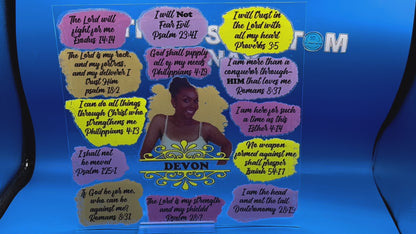 The Lord will
fight for me
Exodus 14:14
I will Not
Fear Evil
Psalm 23:4
I will Trust in
the Lord with
all my heart
Proverbs 3:5
The Lord is my rock,
and my fortress,
and my deliverer I
Trust Him
psalm 18:2
God shall supply
all of my needs
Philippians 4:19
I am more than a
conqueror through
HIM that loves me
Romans 8:37
I can do all things
through Christ who
strengthens me
Philippians 4:13
I am here for such
a time as this
Esther 4:14
I shall not
be moved
Psalm
DEVON
No weapon
formed against me
shall prosper
Isaiah 54:17
If God be for me,
who can be
against me?
Romans 8:31
The Lord is my strength
and my shield
Psalm 28:7
I am the head
and not the tail
Deuteronomy 28:13